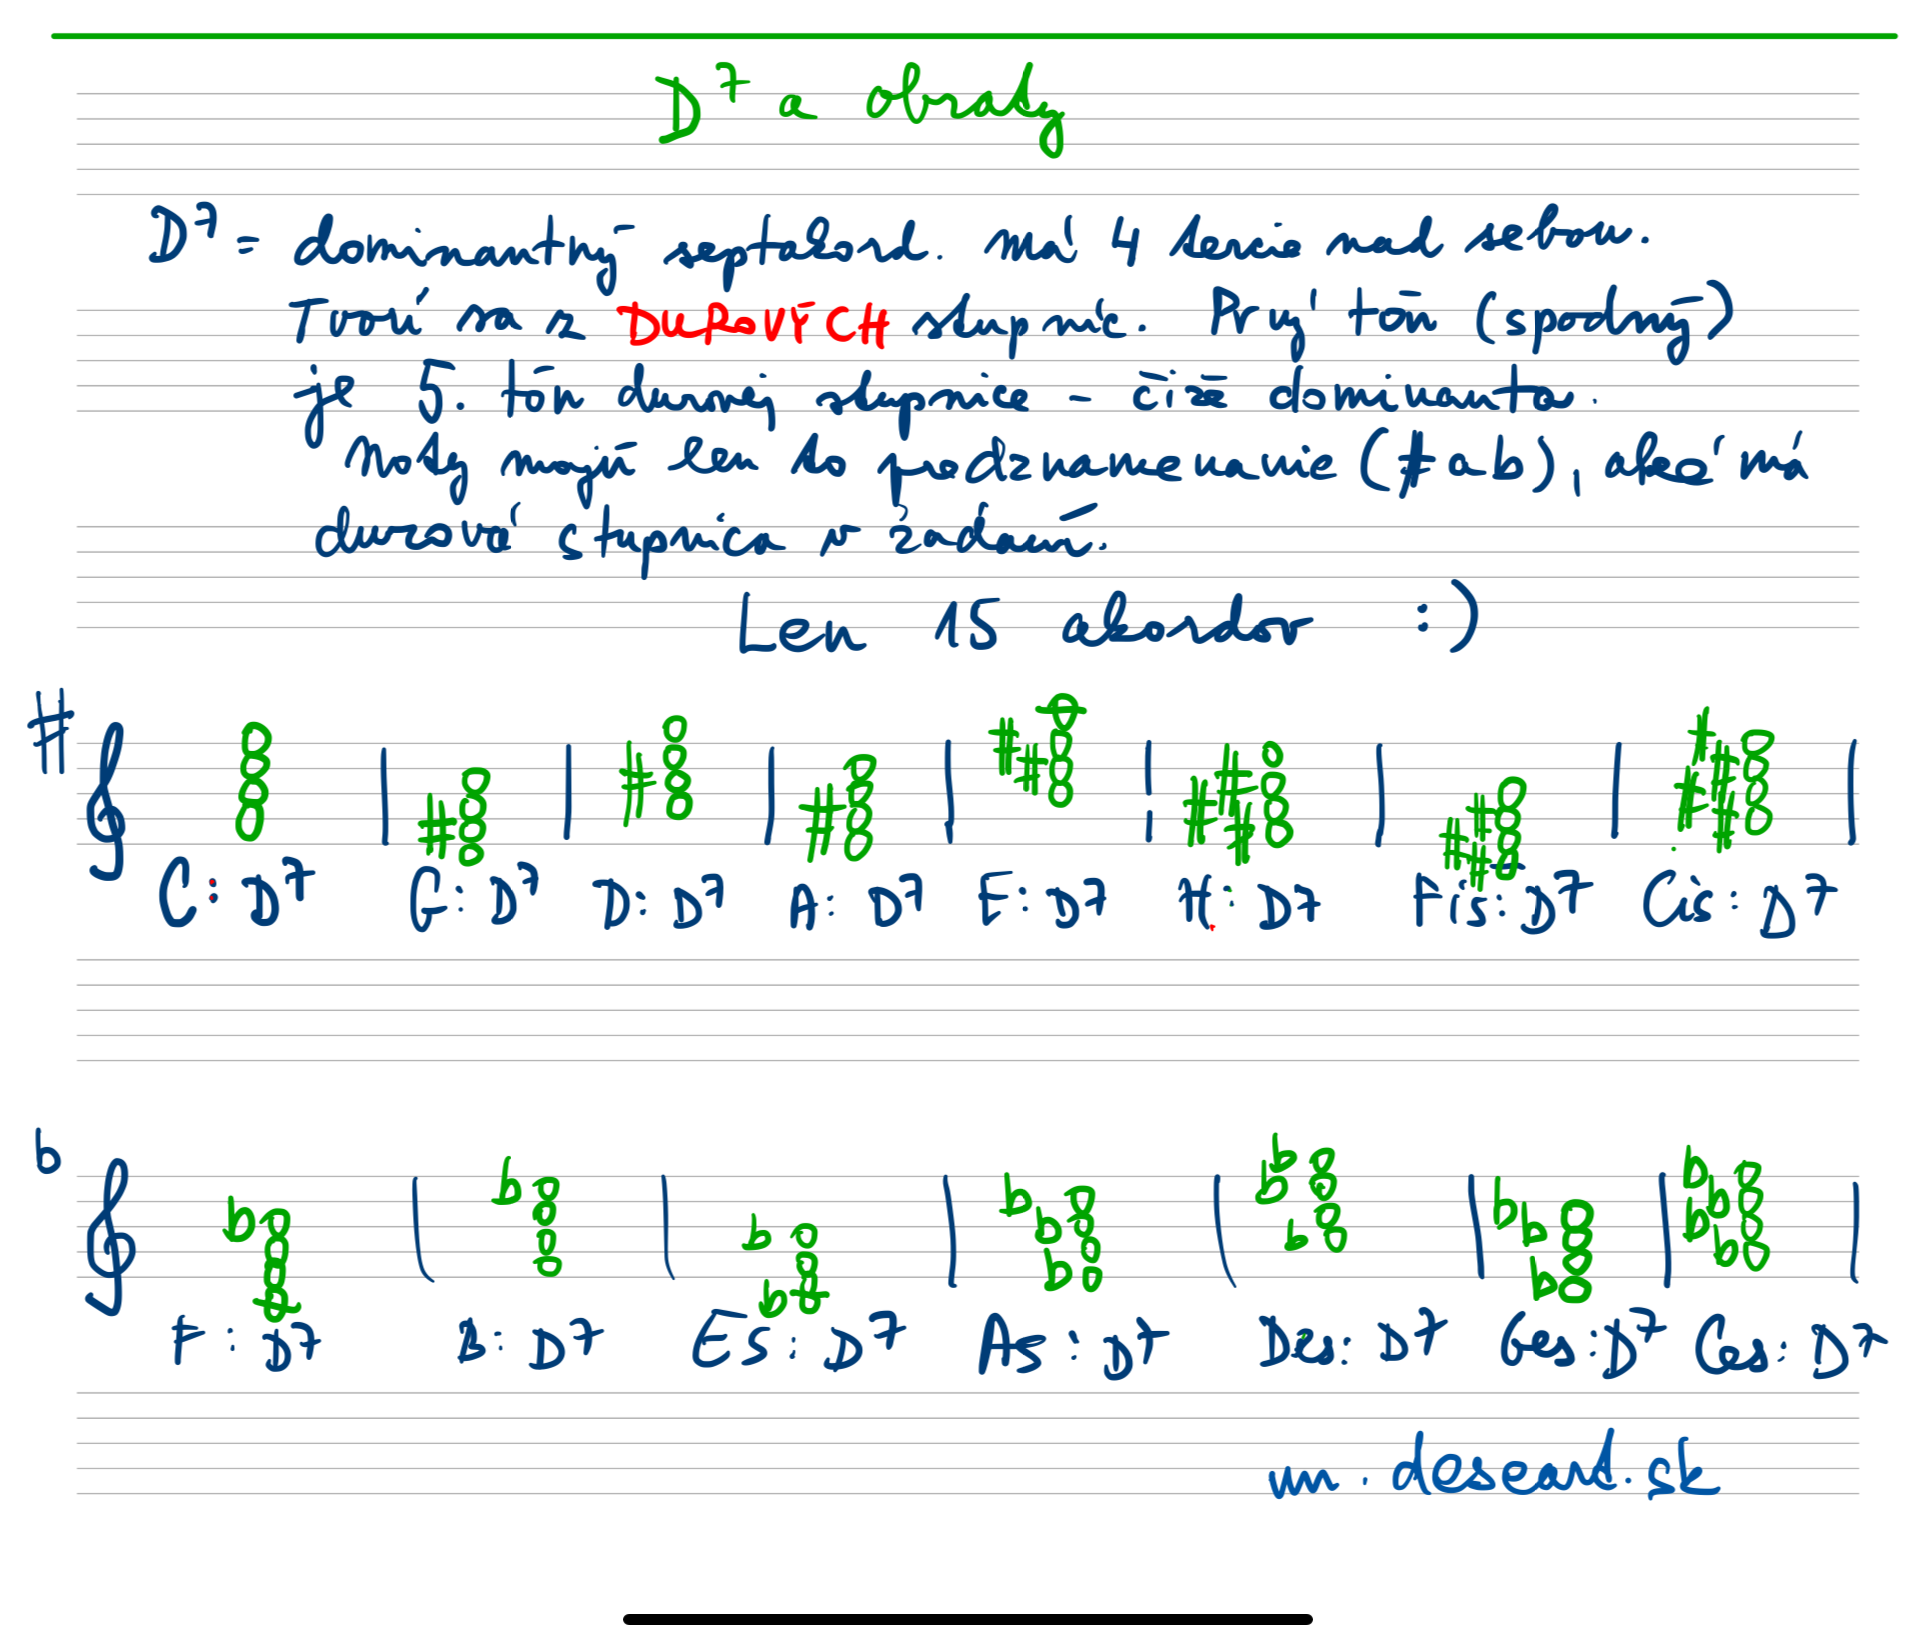 D⁷ a obraty
D⁷ = dominantný septakord. má 4 tercie nad sebou.
Tvorí sa z DUROVÝCH stupníc. Prvý tón (spodný)
je 5. tón durovej stupnice - čiže dominanta.
Noty majú len to predznamenanie (# a b), aké má
durová stupnica v zadaní.
Len 15 akordov :)
#
C: D⁷ G: D⁷ D: D⁷ A: D⁷ E: D⁷ H: D⁷ Fis: D⁷ Cis: D⁷
b
F: D⁷ B: D⁷ Es: D⁷ As: D⁷ Des: D⁷ Ges: D⁷ Ces: D⁷
deseard.sk